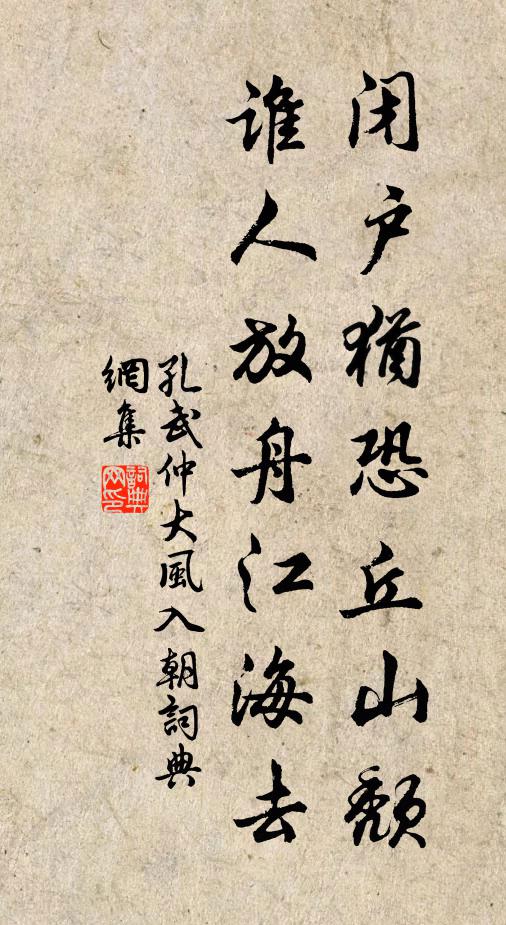 闭户猶恐丘山頽
誰人放舟江海去
孔武仲大風入朝詞典
網集
詞典
网印